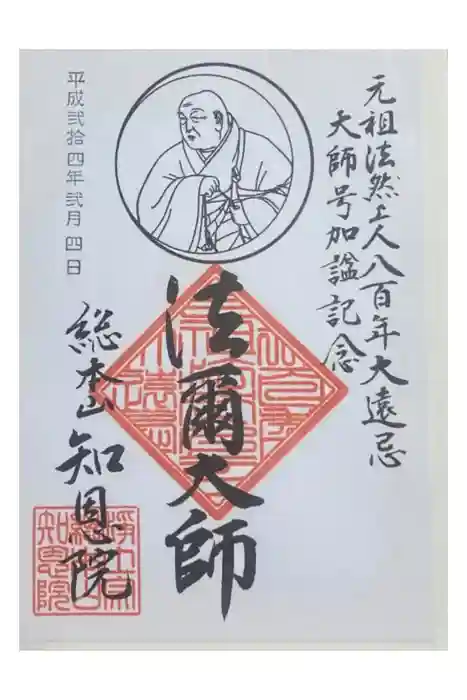 元祖法然上人八百年大遠忌
大師号加諡記念
法爾大師
平成弐拾四年弐月四日
総本山知恩院
浄土宗
総本山
知恩院